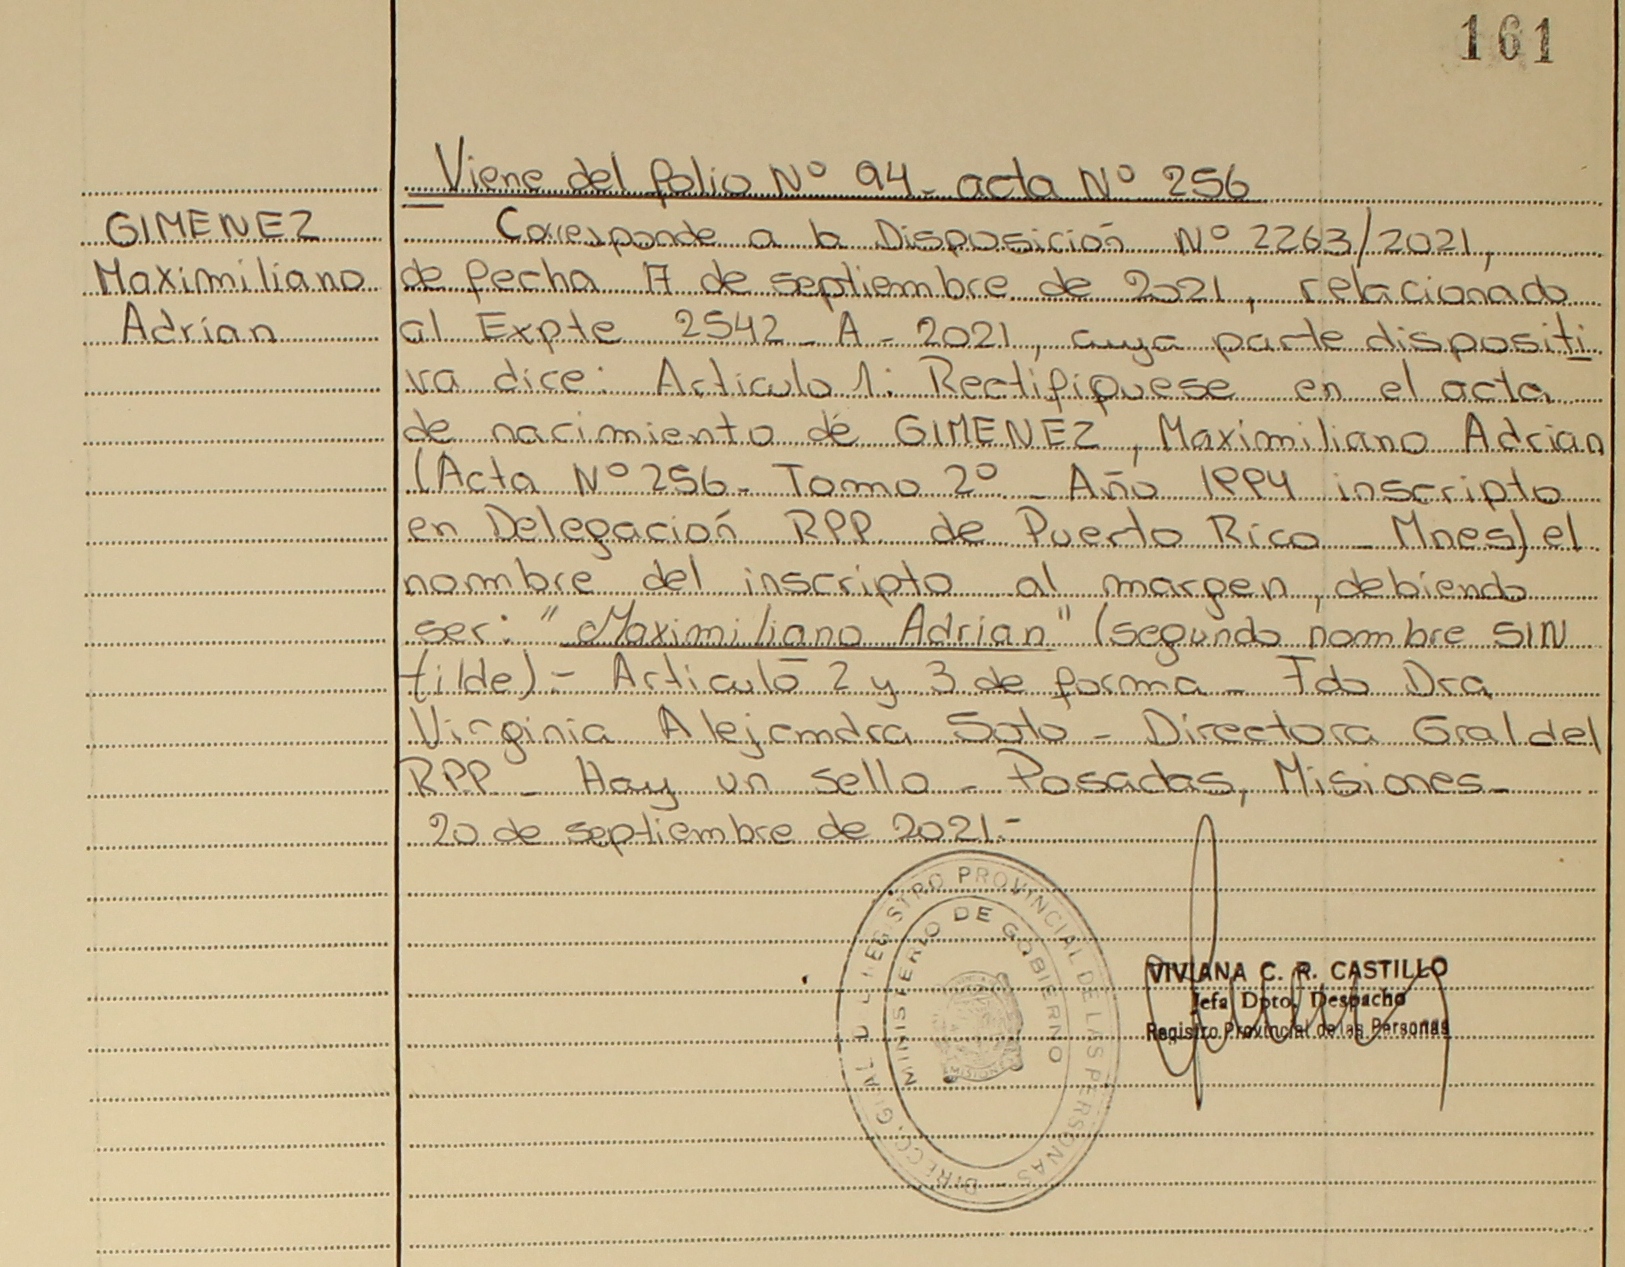 161
Viene del folio Nº 94 - acta Nº 256
GIMENEZ
Maximiliano
Adrían
Corresponde a la Disposición Nº 2263/2021,
de fecha 17 de septiembre de 2021, relacionado
al Expte 2542 - A - 2021, cuya parte dispositi
va dice: Articulo 1: Rectifiquese en el acta
de nacimiento de GIMENEZ, Maximiliano Adrian
(Acta Nº 256 - Tomo 2º - Año 1994 inscripto
en Delegación RPP. de Puerto Rico - Mnes) el
nombre del inscripto al margen, debiendo
ser: "Maximiliano Adrian" (segundo nombre SIN
tilde) - Articulo 2 y 3 de forma - Fdo Dra
Virginia Alejandra Soto - Directora Gral del
RPP - Hay un sello - Posadas, Misiones -
20 de septiembre de 2021.-
REGISTRO PROVINCIAL DE LAS PERSONAS
MINISTERIO DE GOBIERNO
MISIONES
VIVIANA C. R. CASTILLO
Jefa Dpto. Despacho
Registro Provincial de las Personas